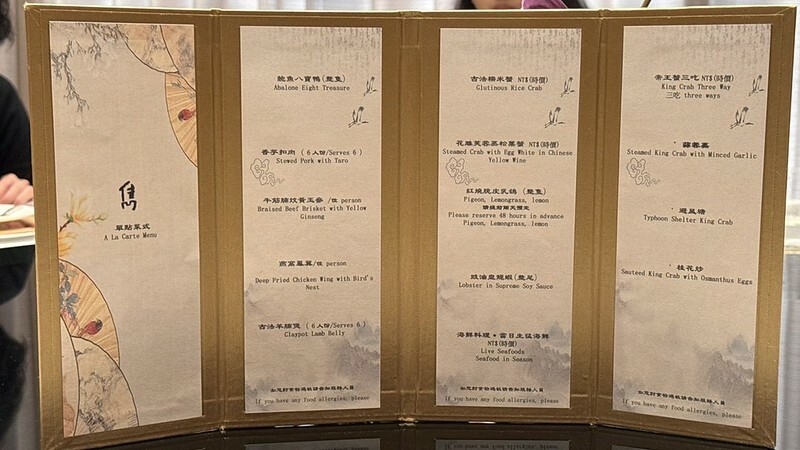 雋
單點菜式
A La Carte Menu
鮑魚八寶鴨(整隻)
Abalone Eight Treasure
香芋扣肉 ( 6 人份/Serves 6 )
Stewed Pork with Taro
牛筋腩炆黃玉參 /位 person
Braised Beef Brisket with Yellow
Ginseng
燕窩鳳翼/位 person
Deep Pried Chicken Wing with Bird's
Nest
古法羊腩煲 ( 6 人份/Serves 6 )
Claypot Lamb Belly
如您對食物過敏請告知服務人員
If you have any food allergies, please
古法糯米蟹 NT$(時價)
Glutinous Rice Crab
花雕芙蓉蒸松葉蟹 NT$(時價)
Steamed Crab with Egg White in Chinese
Yellow Wine
紅燒脆皮乳鴿 (整隻)
Pigeon, Lemongrass, lemon
請提前兩天預定
Please reserve 48 hours in advance
Pigeon, Lemongrass, lemon
豉油皇龍蝦(整尾)
Lobster in Supreme Soy Sauce
海鮮料理•當日生猛海鮮
NT$(時價)
Live Seafoods
Seafood in Season
如您對食物過敏請告知服務人員
If you have any food allergies, please
帝王蟹三吃 NT$(時價)
King Crab Three Way
三吃 three ways
蒜蓉蒸
Steamed King Crab with Minced Garlic
避風塘
Typhoon Shelter King Crab
桂花炒
Sauteed King Crab with Osmanthus Eggs
如您對食物過敏請告知服務人員
If you have any food allergies, please